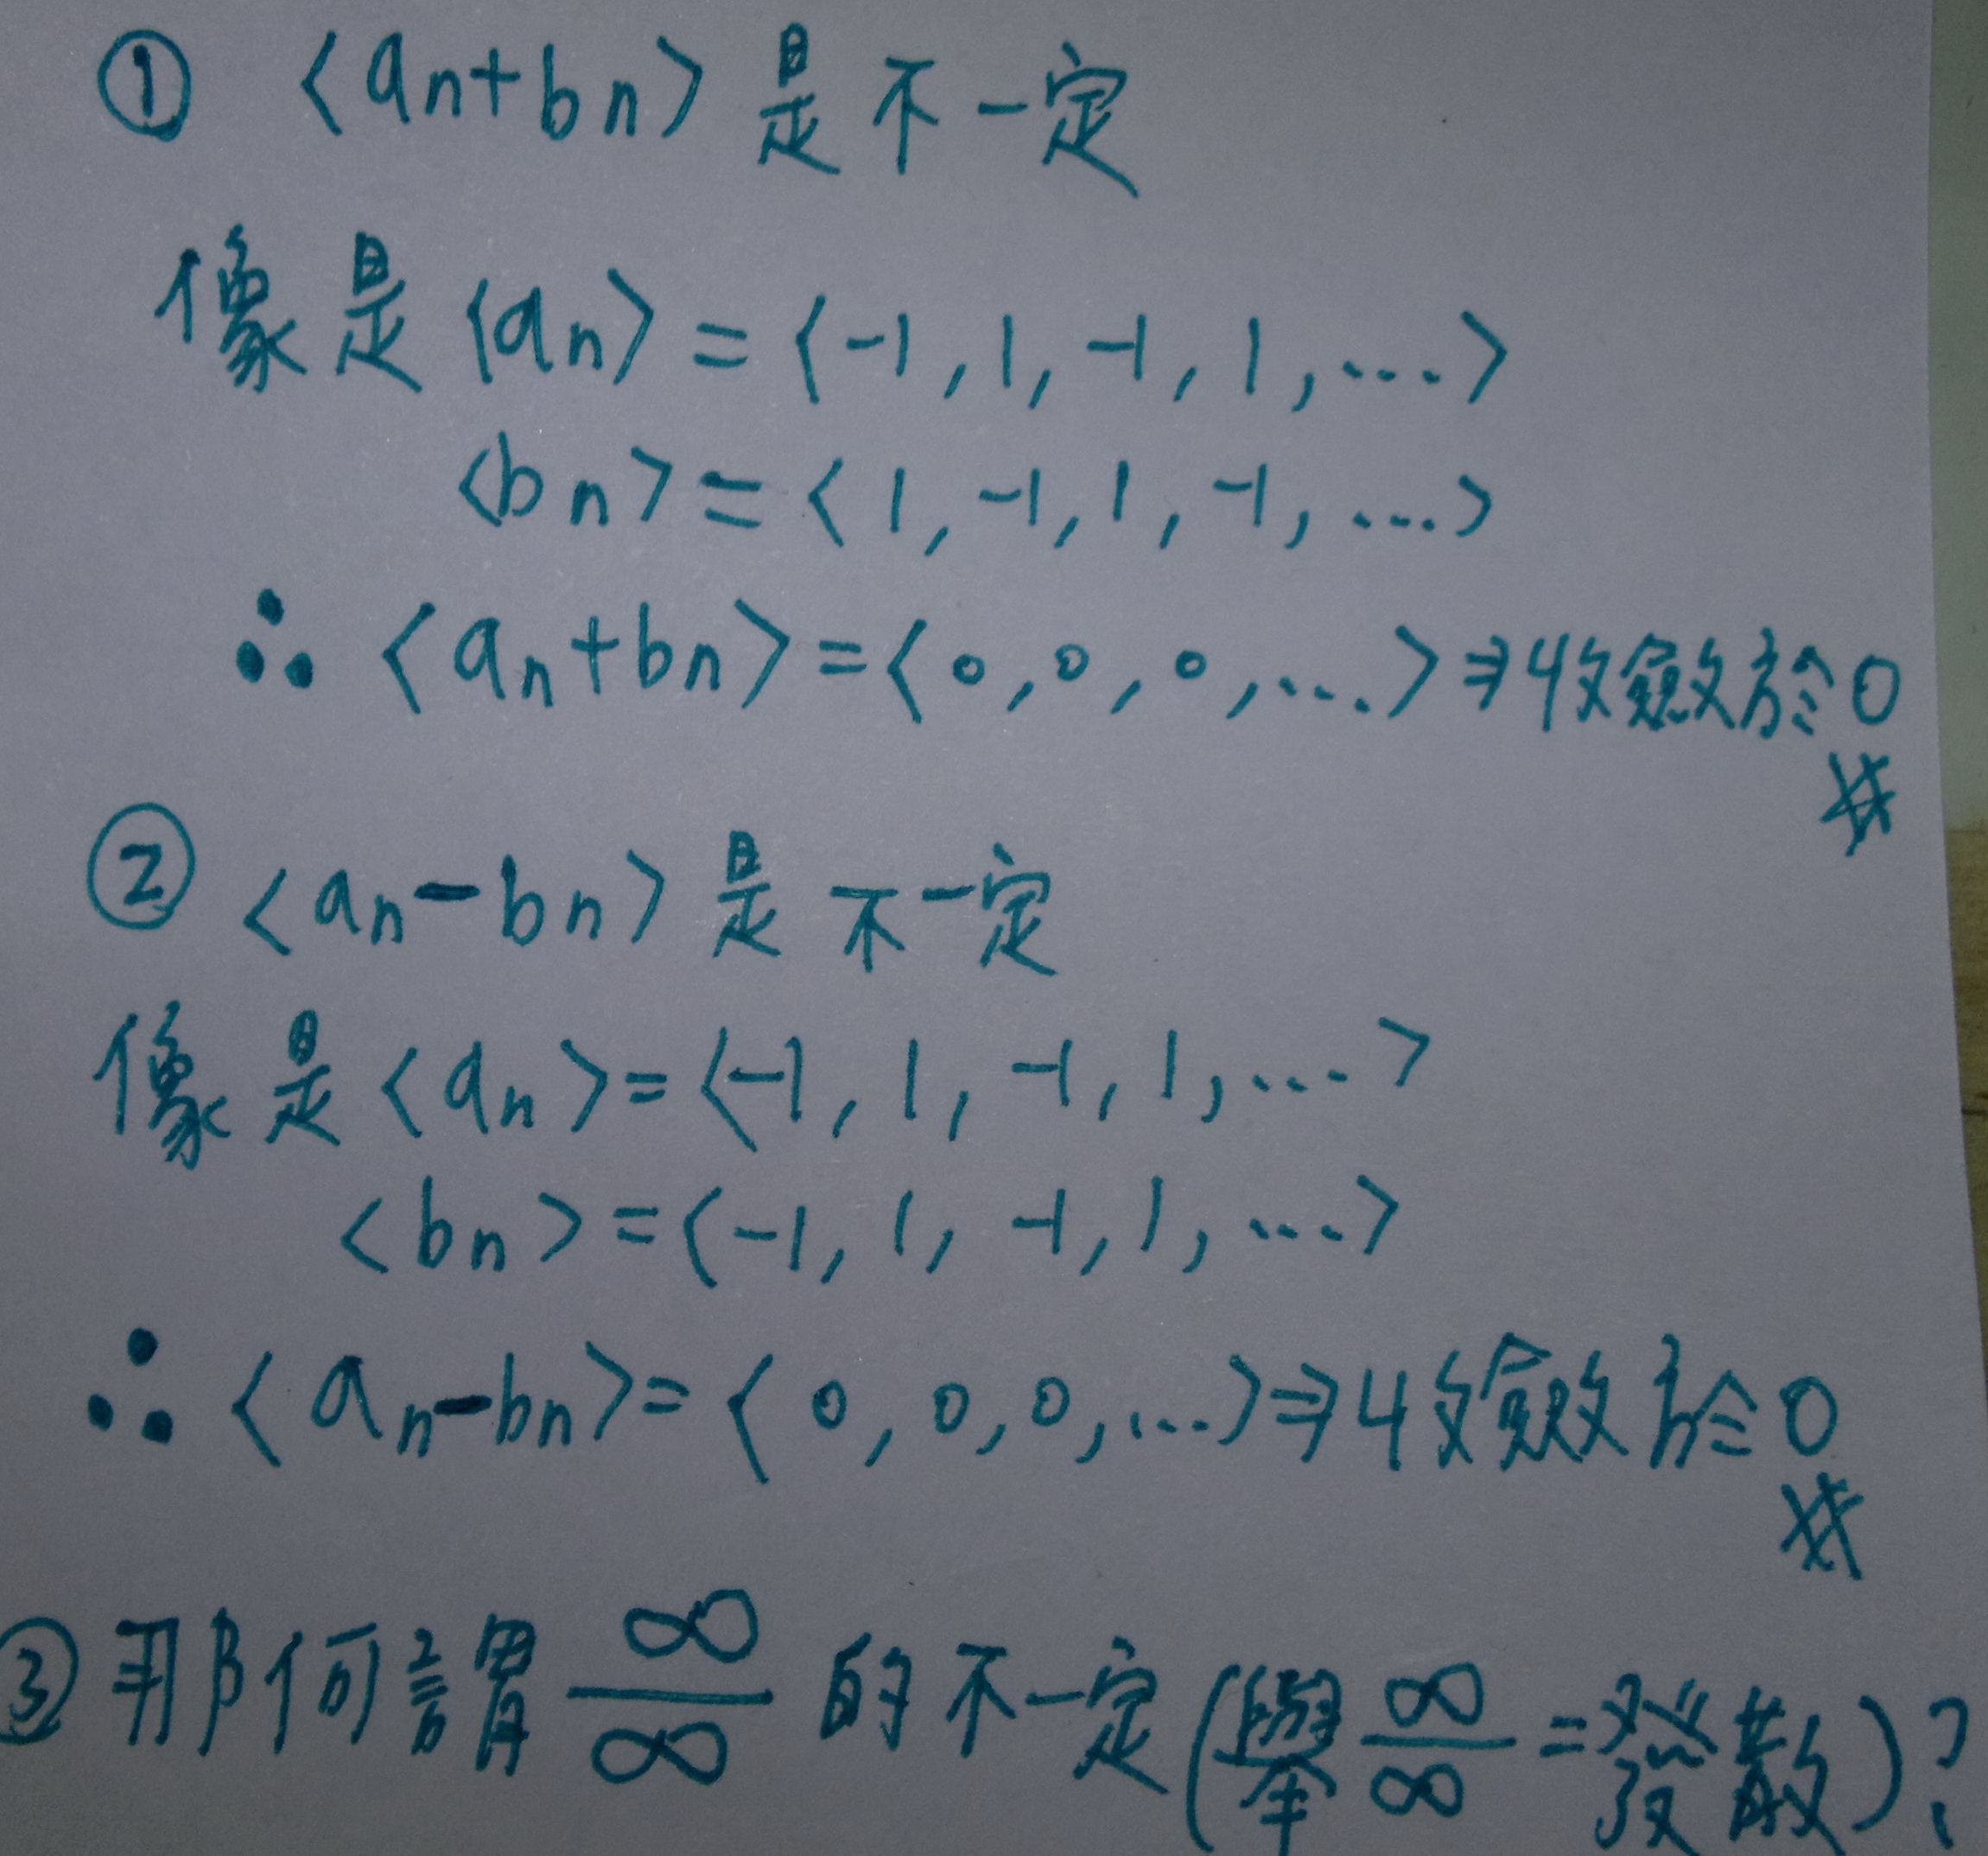 ① ⟨an+bn⟩是不一定
像是⟨an⟩=⟨-1,1,-1,1,...⟩
⟨bn⟩=⟨1,-1,1,-1,...⟩
∴ ⟨an+bn⟩=⟨0,0,0,...⟩⇒收斂於0
#
② ⟨an-bn⟩是不一定
像是⟨an⟩=⟨-1,1,-1,1,...⟩
⟨bn⟩=⟨-1,1,-1,1,...⟩
∴ ⟨an-bn⟩=⟨0,0,0,...⟩⇒收斂於0
#
③那何謂∞/∞的不一定(舉∞/∞=發散)?